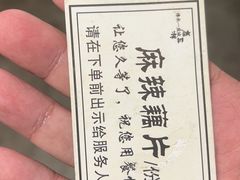 麻辣藕片/份
让您久等了，祝您用餐
请在下单前出示给服务人